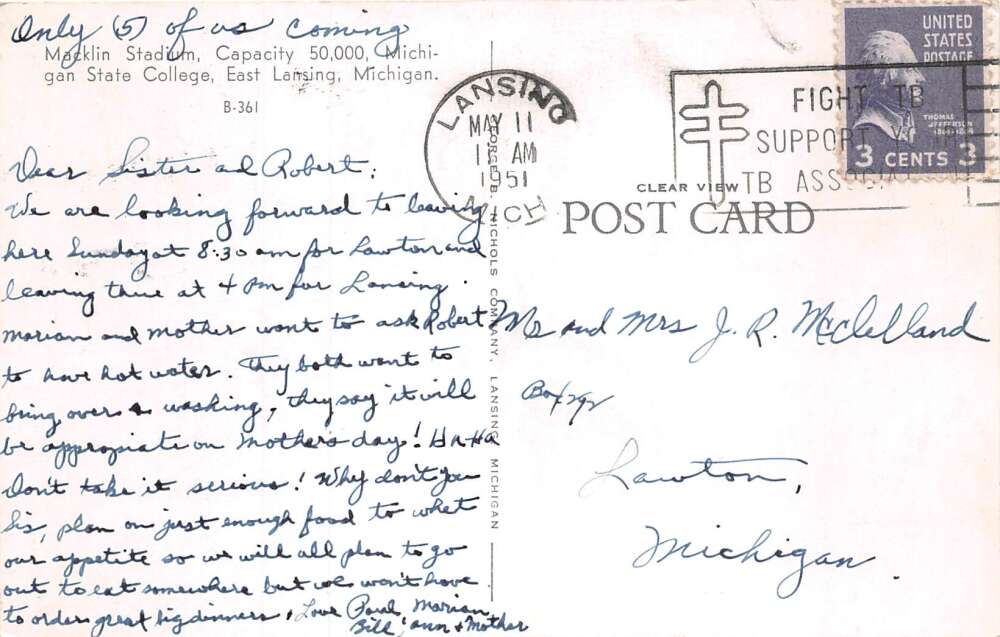 Only (5) of us coming
Macklin Stadium, Capacity 50,000, Michi-
gan State College, East Lansing, Michigan.
B-361
Dear Sister and Robert;
We are looking forward to leaving
here Sunday at 8:30 am for Lawton and
leaving there at 4 pm for Lansing.
Marian and Mother want to ask Robert
to have hot water. They both want to
bring over a washing, they say it will
be appropiate on Mother's day! Ha-Ha
Don't take it serious! Why don't you
Sis, plan on just enough food to whet
our appetite so we will all plan to go
out to eat somewhere but we won't have
to order great big dinners. Love Paul, Marian,
Bill, Ann & Mother
GEORGE B. NICHOLS COMPANY, LANSING, MICHIGAN
LANSING
MAY 11
11 AM
1951
MICH
FIGHT TB
SUPPORT YOUR
TB ASSOCIATION
UNITED
STATES
POSTAGE
THOMAS
JEFFERSON
3 CENTS 3
CLEAR VIEW
POST CARD
Mr and Mrs J. R. McClelland
Box 292
Lawton,
Michigan.